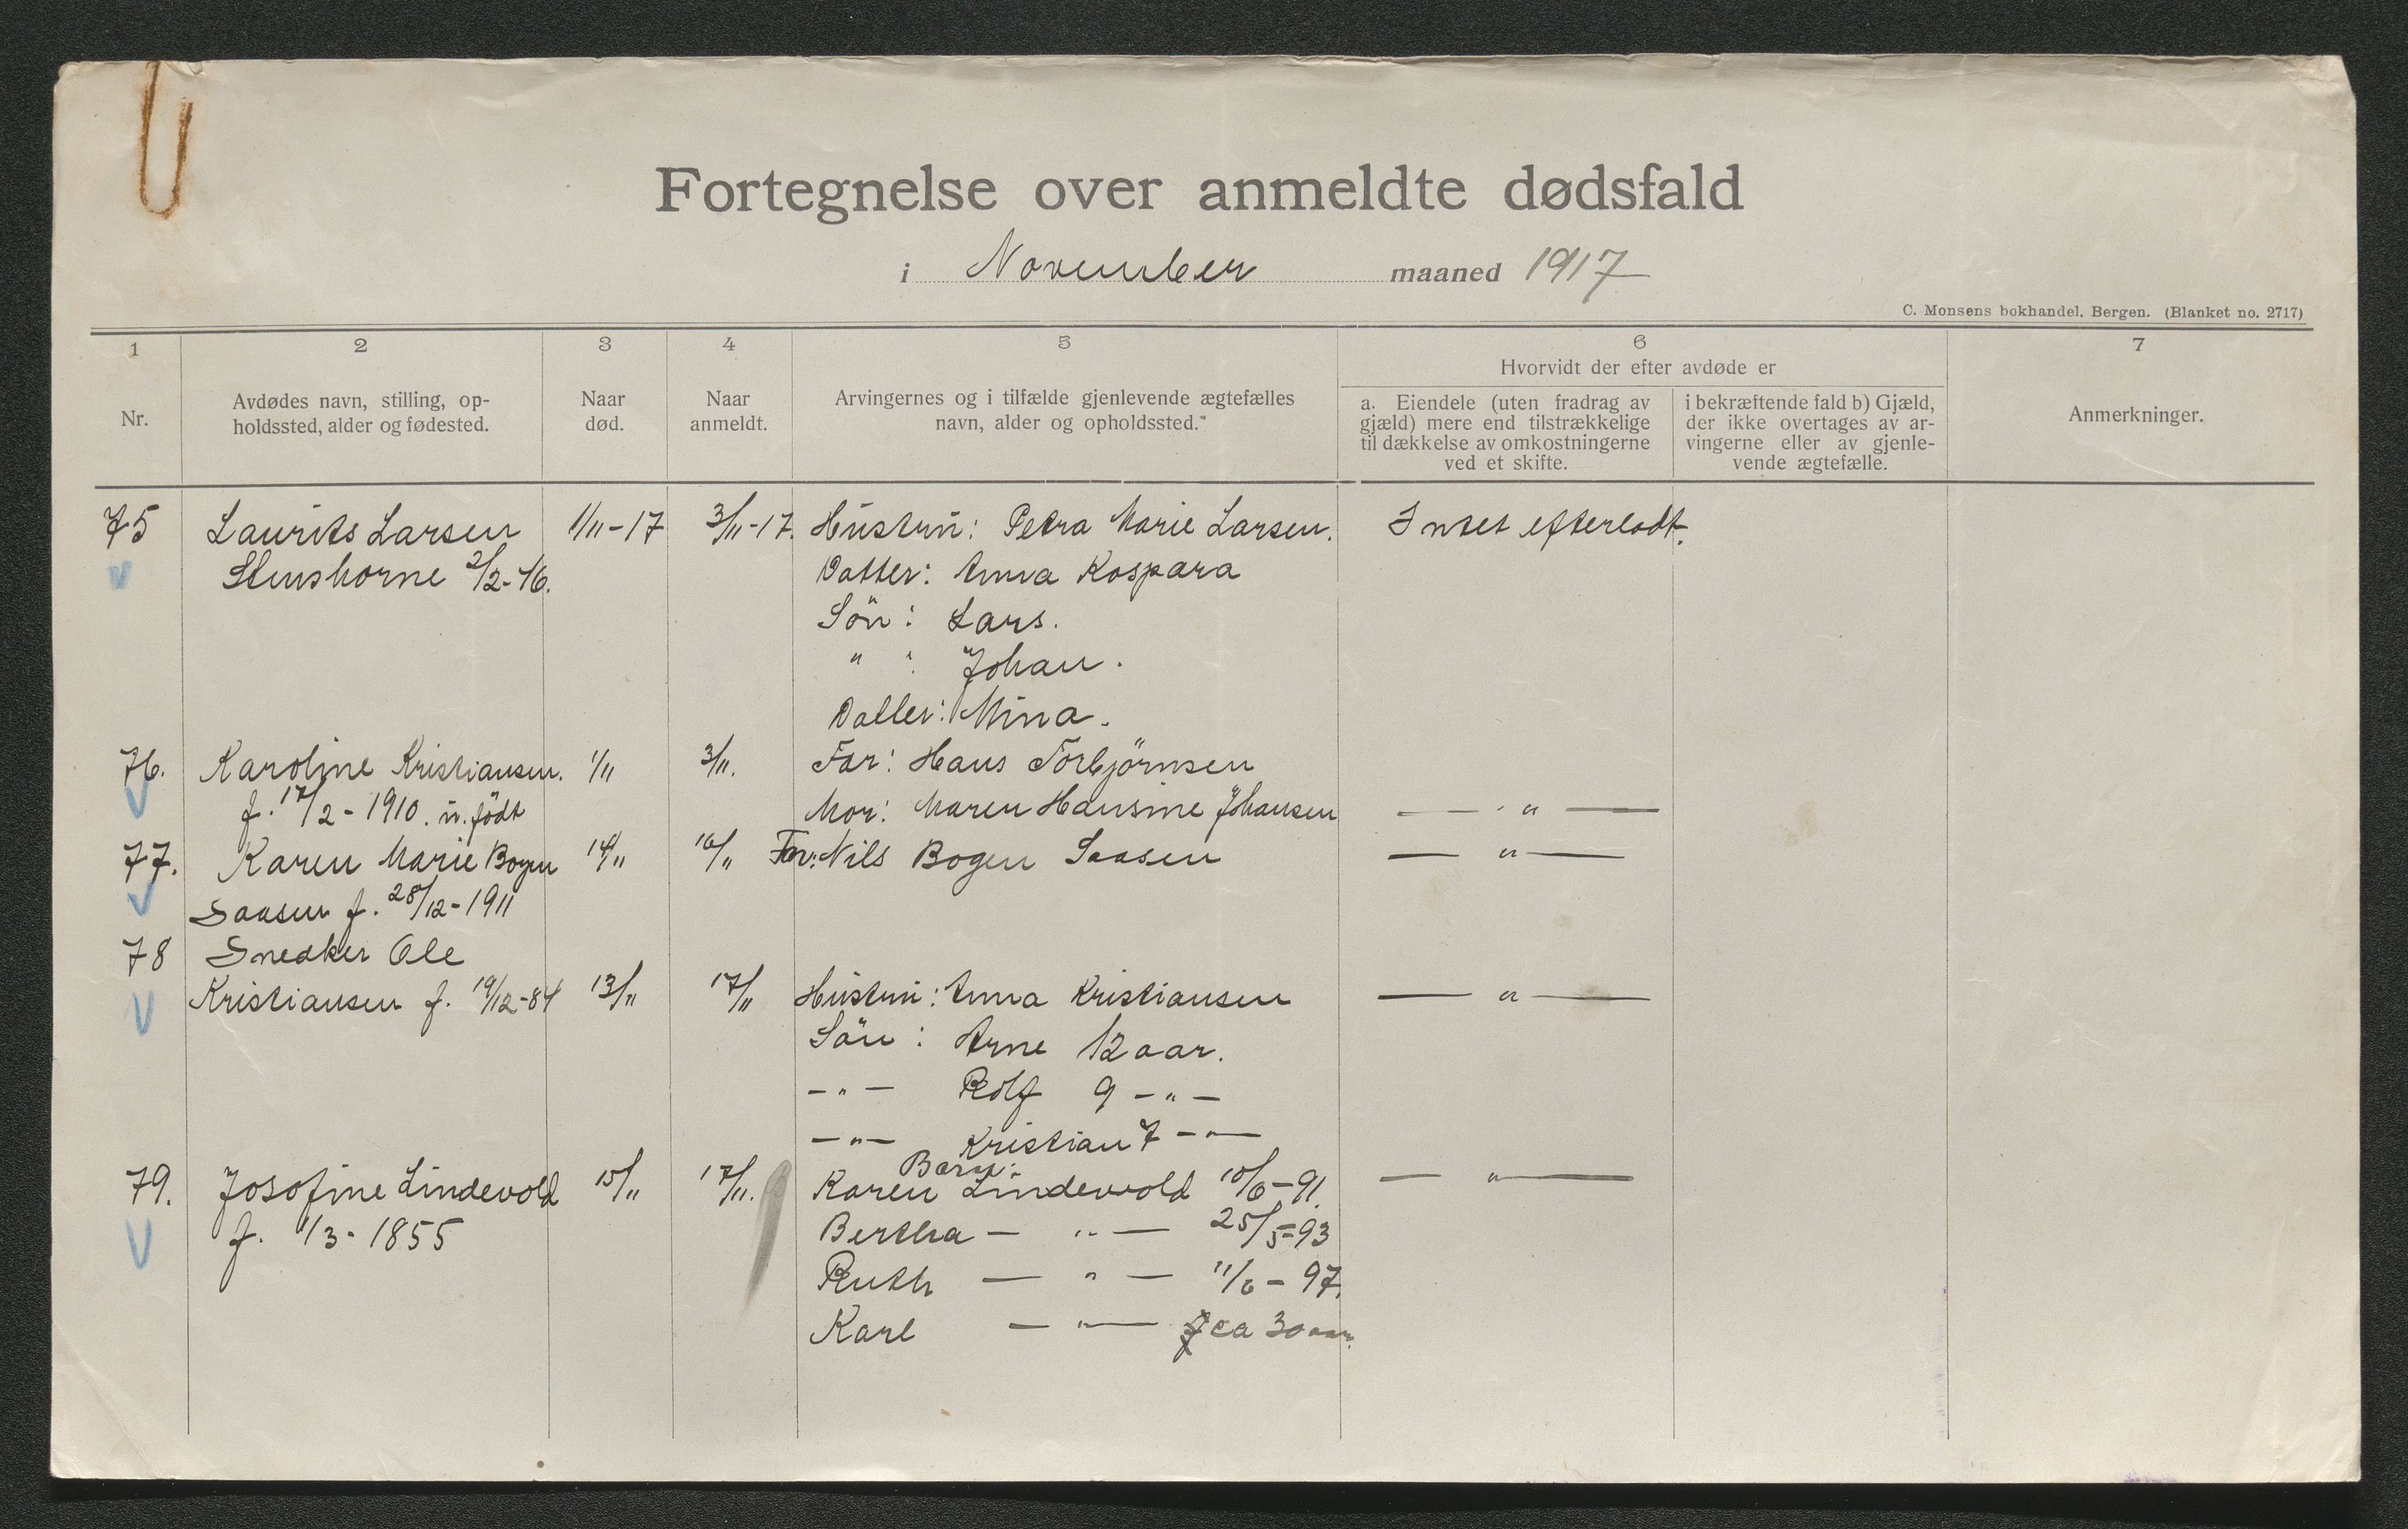 Fortegnelse over anmeldte dødsfald
i November maaned 1917
C. Monsens bokhandel. Bergen. (Blanket no. 2717)
1 2 3 4 5 6 7
Nr.
Avdødes navn, stilling, op-
holdssted, alder og fødested.
Naar
død.
Naar
anmeldt.
Arvingernes og i tilfælde gjenlevende ægtefælles
navn, alder og opholdssted.
Hvorvidt der efter avdøde er
a. Eiendele (uten fradrag av
gjæld) mere end tilstrækkelige
til dækkelse av omkostningerne
ved et skifte.
i bekræftende fald b) Gjæld,
der ikke overtages av ar-
vingerne eller av gjenle-
vende ægtefælle.
Anmerkninger.
75 Laurits Larsen 1/11-17 3/11-17. Hustru: Petra Marie Larsen. Intet efterladt.
Stenshorne 2/2-46. Datter: Anna Kaspara
Sön: Lars.
" : Johan.
Datter: Mina.
76. Karoline Kristiansen. 1/11 3/11. Far: Hans Torbjörnsen
f. 17/2-1910. u. födt Mor: Maren Hansine Johansen — " —
77. Karen Marie Bogen 14/11 16/11 Far: Nils Bogen Saasen — " —
Saasen f. 28/12-1911
78 Snedker Ole
Kristiansen f. 19/12-84 13/11 17/11 Hustru: Anna Kristiansen — " —
Sön: Arne 12 aar.
-"- Rolf 9 -"-
-"- Kristian 7 -"-
Barn:
79. Josofine Lindevold 15/11 17/11. Karen Lindevold 10/6-91. — " —
f. 1/3-1855 Bertha — " — 25/5-93
Ruth — " — 11/6-97.
Karl — " — ca 30 aar.